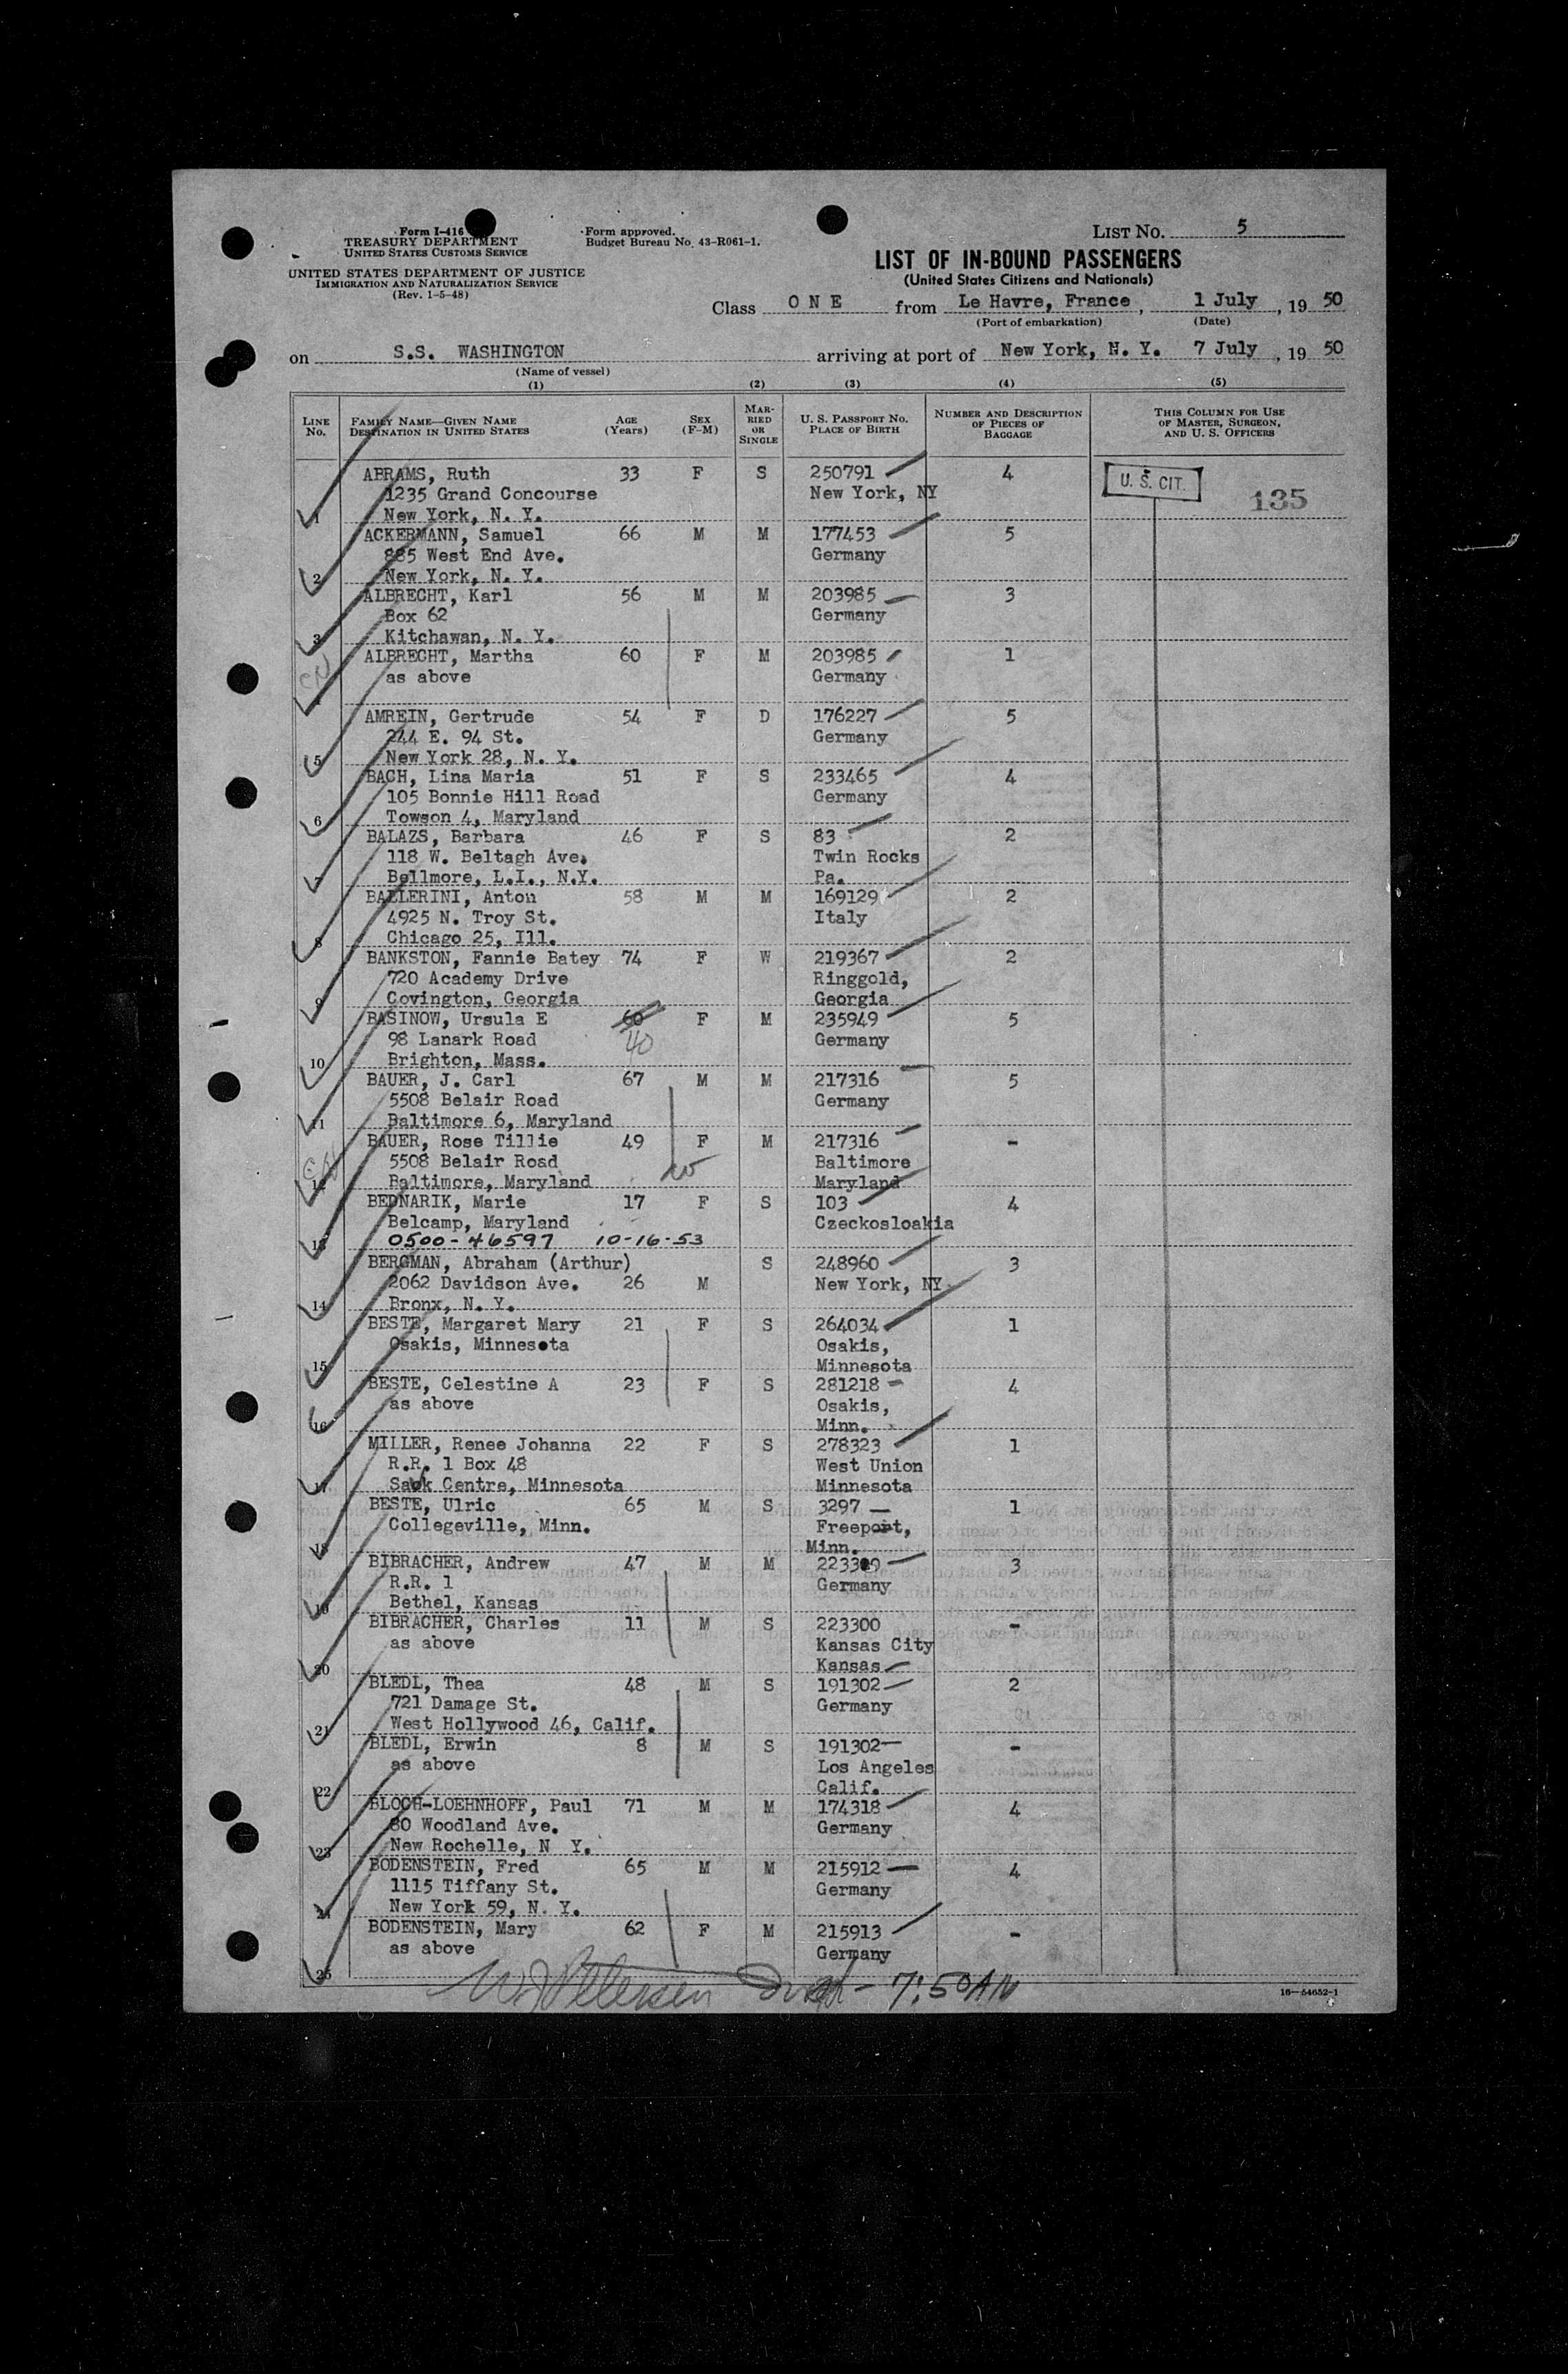 Form I-416
TREASURY DEPARTMENT
UNITED STATES CUSTOMS SERVICE
UNITED STATES DEPARTMENT OF JUSTICE
IMMIGRATION AND NATURALIZATION SERVICE
(Rev. 1-5-48)
Form approved.
Budget Bureau No. 43-R061-1.
LIST NO. 5
LIST OF IN-BOUND PASSENGERS
(United States Citizens and Nationals)
Class O N E from Le Havre, France, 1 July, 19 50
(Port of embarkation) (Date)
on S.S. WASHINGTON arriving at port of New York, N. Y. 7 July, 19 50
(Name of vessel)
(1) (2) (3) (4) (5)
LINE No. FAMILY NAME—GIVEN NAME DESTINATION IN UNITED STATES AGE (Years) SEX (F-M) MARRIED OR SINGLE U. S. PASSPORT NO. PLACE OF BIRTH NUMBER AND DESCRIPTION OF PIECES OF BAGGAGE THIS COLUMN FOR USE OF MASTER, SURGEON, AND U. S. OFFICERS
ABRAMS, Ruth 33 F S 250791 4 U. S. CIT. 135
1235 Grand Concourse New York, NY
1 New York, N. Y.
ACKERMANN, Samuel 66 M M 177453 5
885 West End Ave. Germany
2 New York, N. Y.
ALBRECHT, Karl 56 M M 203985 3
Box 62 Germany
3 Kitchawan, N. Y.
ALBRECHT, Martha 60 F M 203985 1
as above Germany
4
AMREIN, Gertrude 54 F D 176227 5
244 E. 94 St. Germany
5 New York 28, N. Y.
BACH, Lina Maria 51 F S 233465 4
105 Bonnie Hill Road Germany
6 Towson 4, Maryland
BALAZS, Barbara 46 F S 83 2
118 W. Beltagh Ave. Twin Rocks
7 Bellmore, L.I., N.Y. Pa.
BALLERINI, Anton 58 M M 169129 2
4925 N. Troy St. Italy
8 Chicago 25, Ill.
BANKSTON, Fannie Batey 74 F W 219367 2
720 Academy Drive Ringgold,
9 Covington, Georgia Georgia
BASINOW, Ursula E 60 F M 235949 5
98 Lanark Road 40 Germany
10 Brighton, Mass.
BAUER, J. Carl 67 M M 217316 5
5508 Belair Road Germany
11 Baltimore 6, Maryland
BAUER, Rose Tillie 49 F M 217316 -
5508 Belair Road Baltimore
12 Baltimore, Maryland Maryland
BEDNARIK, Marie 17 F S 103 4
Belcamp, Maryland Czeckosloakia
13 0500-46597 10-16-53
BERGMAN, Abraham (Arthur) S 248960 3
2062 Davidson Ave. 26 M New York, NY
14 Bronx, N. Y.
BESTE, Margaret Mary 21 F S 264034 1
Osakis, Minnesota Osakis,
15 Minnesota
BESTE, Celestine A 23 F S 281218 4
as above Osakis,
16 Minn.
MILLER, Renee Johanna 22 F S 278323 1
R.R. 1 Box 48 West Union
17 Sauk Centre, Minnesota Minnesota
BESTE, Ulric 65 M S 3297 1
Collegeville, Minn. Freeport,
18 Minn.
BIBRACHER, Andrew 47 M M 3
R.R. 1 Germany
19 Bethel, Kansas
BIBRACHER, Charles 11 M S 223300 -
as above Kansas City
20 Kansas
BLEDL, Thea 48 M S 191302 2
721 Damage St. Germany
21 West Hollywood 46, Calif.
BLEDL, Erwin 8 M S 191302 -
as above Los Angeles
22 Calif.
BLOCH-LOEHNHOFF, Paul 71 M M 174318 4
80 Woodland Ave. Germany
23 New Rochelle, N Y.
BODENSTEIN, Fred 65 M M 215912 4
1115 Tiffany St. Germany
24 New York 59, N. Y.
BODENSTEIN, Mary 62 F M 215913 -
as above Germany
25
W J Petersen 7:50 AM
16—54652-1